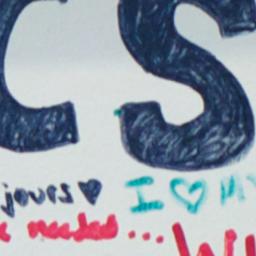 CS
jours♥
I ♡ M
needed...